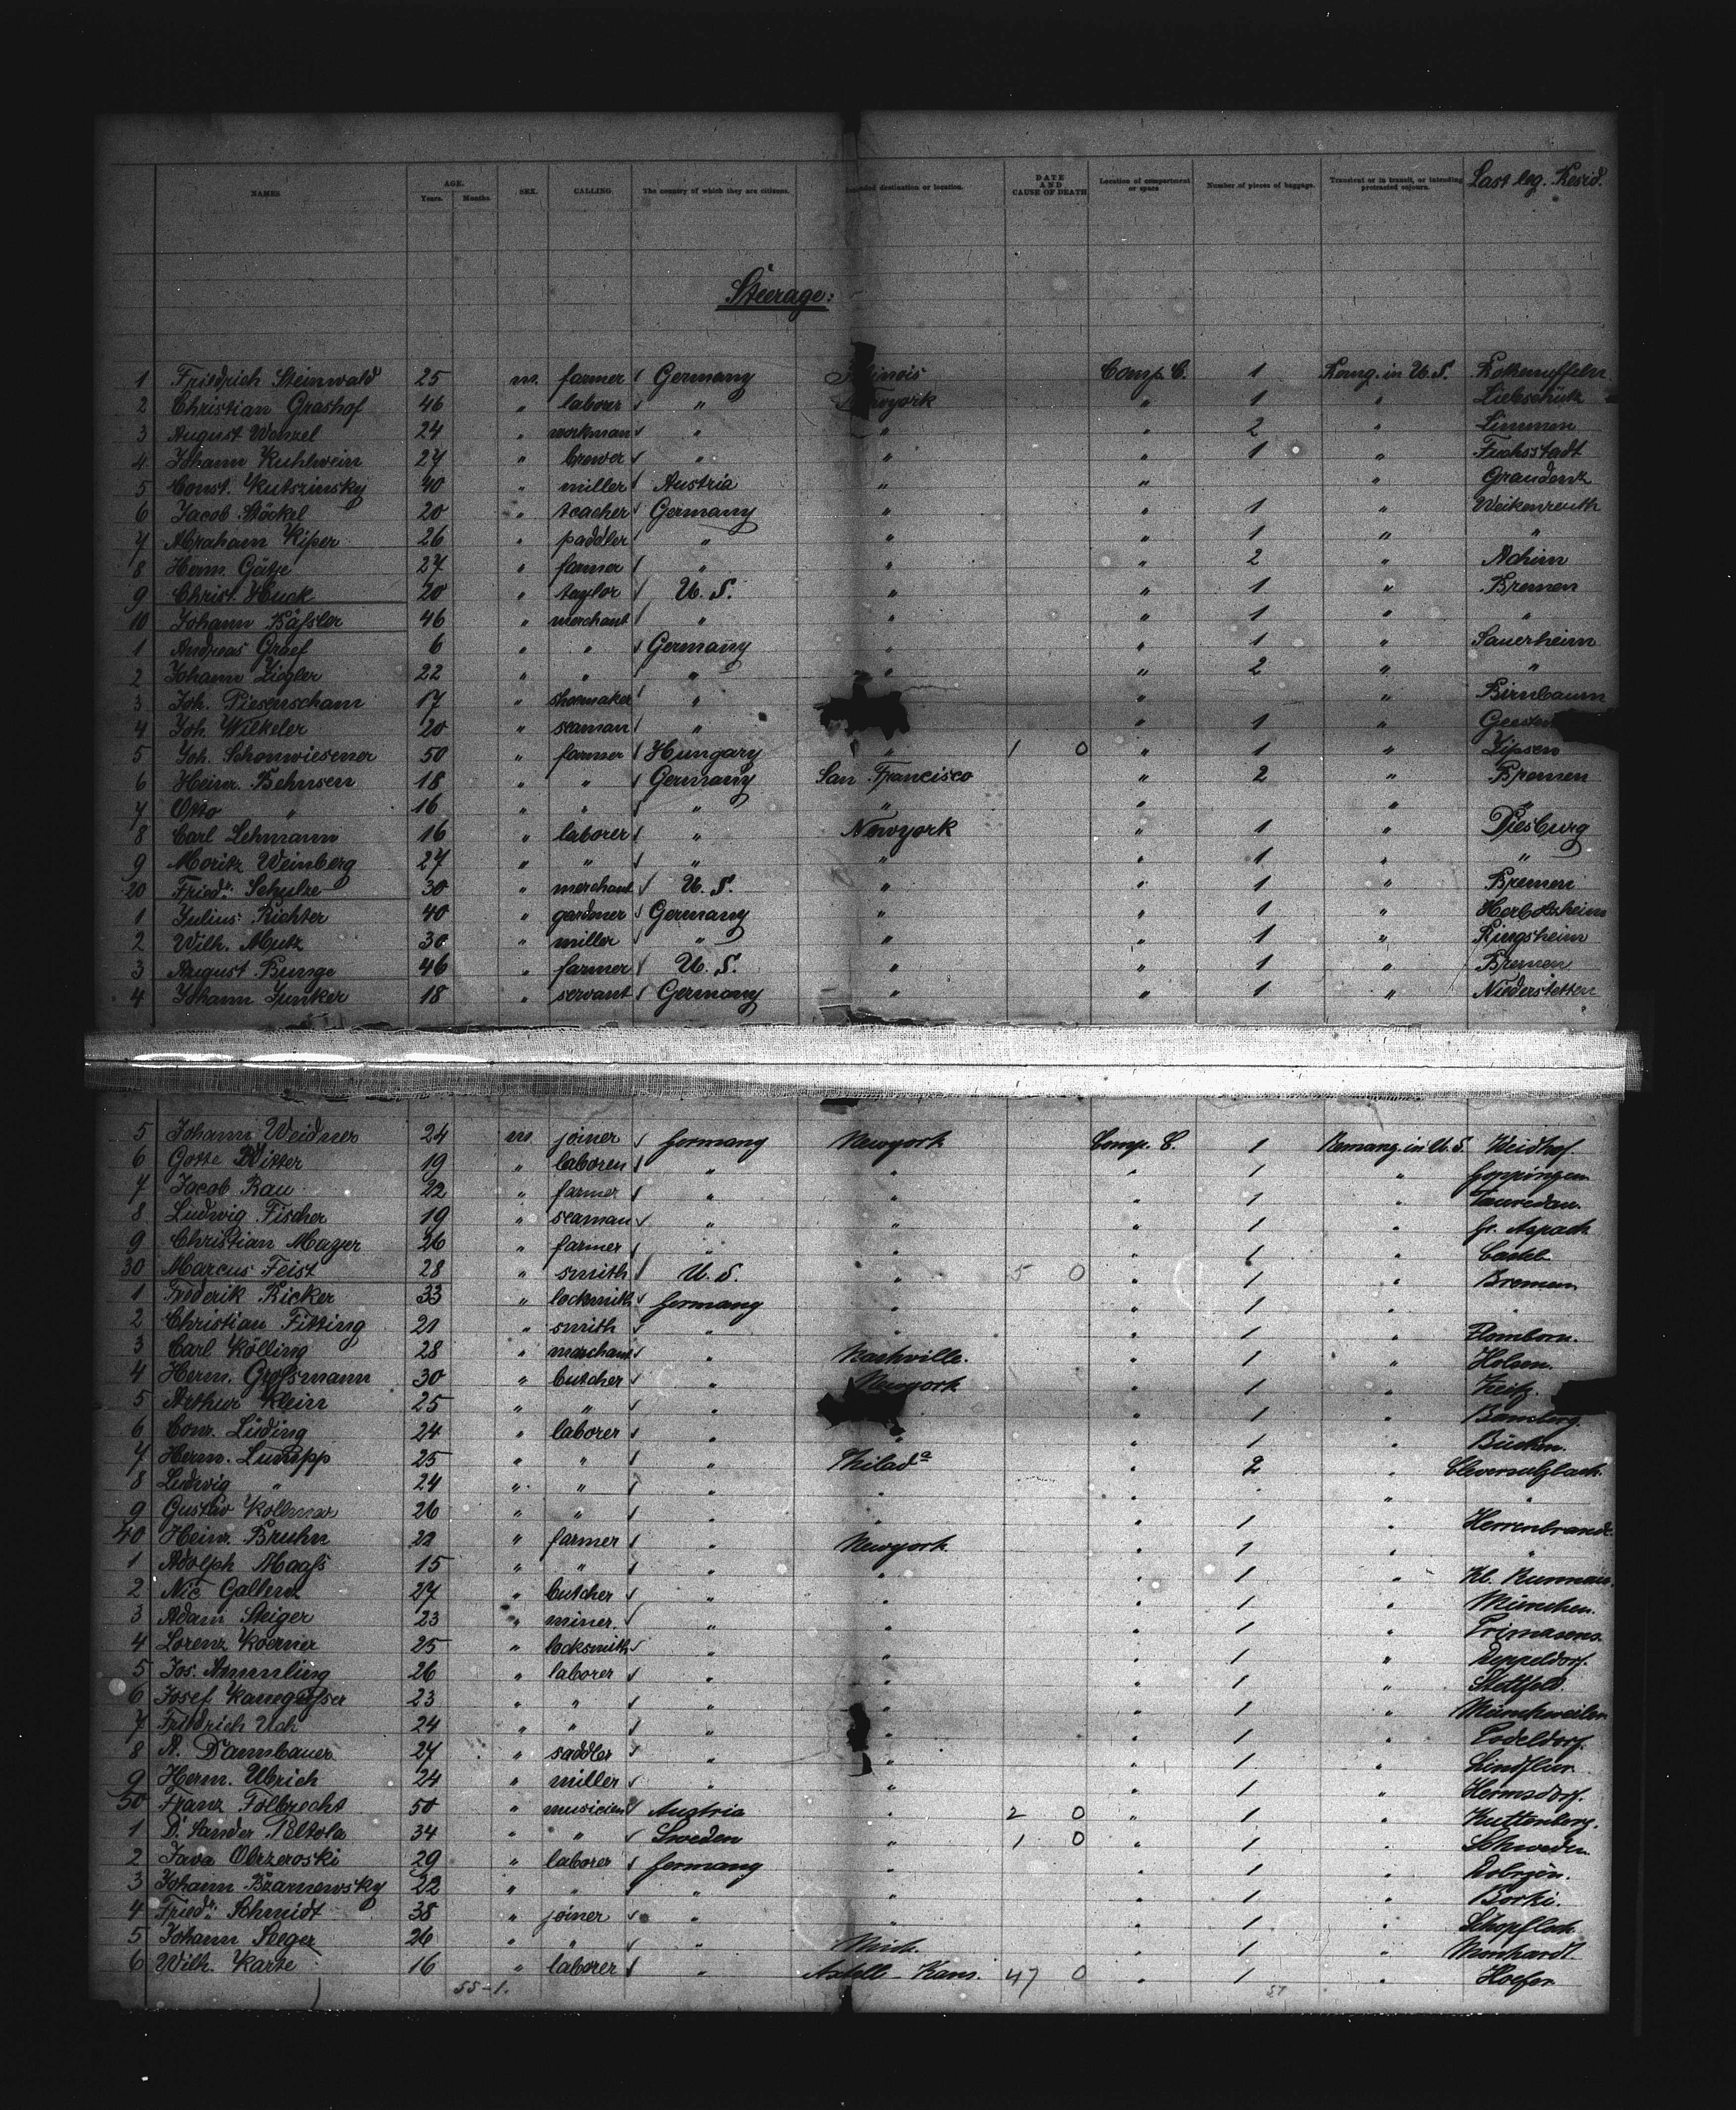 NAMES AGE. Years. Months SEX. CALLING. The country of which they are citizens. destination or location. DATE AND CAUSE OF DEATH Location of compartment or space Number of pieces of baggage. Transient or in transit, or intending protracted sojourn. Last leg. Resid.
Steerage:
1 Friedrich Steinwald 25 m. farmer Germany Illinois Comp. C. 1 in U.S.
2 Christian Grashof 46 " laborer " Newyork " 1 " Liebschütz
3 August Wenzel 24 " workman " " " 2 " Limmen
4 Johann Kuhlwein 27 " brewer " " " 1 " Fuchsstadt
5 Const. Kutszinsky 40 " miller Austria " " " Graudenz
6 Jacob Stöckel 20 " teacher Germany " " 1 " Weikenreuth
7 Abraham Kiper 26 " paddler " " " 1 " "
8 Herm. Götze 27 " farmer " " " 2 " Achim
9 Christ. Huck 20 " taylor U. S. " " 1 " Bremen
10 Johann Bäßler 46 " merchant " " " 1 " "
1 Andreas Graef 6 " " Germany " " 1 " Sauerheim
2 Johann Ziegler 22 " " " " " 2 " "
3 Joh. Piesenscham 17 " shoemaker " " " Birnbaum
4 Joh. Wilkeler 20 " seaman " " 1 "
5 Joh. Schonwiesener 50 " farmer Hungary " 1 0 " 1 " Zipsen
6 Heinr. Behnsen 18 " " Germany San Francisco " 2 " Bremen
7 Otto " 16 " " " " " " "
8 Carl Lehmann 16 " laborer " Newyork " 1 " Diesburg
9 Moritz Weinberg 27 " " " " " 1 " "
20 Friedr. Schulze 30 " merchant U. S. " " 1 " Bremen
1 Julius Richter 40 " gardner Germany " " 1 " Herbolzheim
2 Wilh. Mutz 30 " miller " " " 1 " Ringsheim
3 August Bunge 46 " farmer U. S. " " 1 " Bremen
4 Johann Junker 18 " servant Germany " " 1 " Niederstetten
5 Johann Weidner 24 m joiner Germany Newyork Comp. C. 1 in U. S. Weidhof
6 Gotte Ritter 19 " laborer " " " 1 " Göppingen
7 Jacob Rau 22 " farmer " " " 1 "
8 Ludwig Fischer 19 " seaman " " " 1 " Gr. Aspach
9 Christian Mayer 26 " farmer " " " 1 " Castel
30 Marcus Feist 28 " smith U. S. " 5 0 " 1 " Bremen
1 Frederik Ricker 33 " locksmith Germany " " 1 " "
2 Christian Fitting 21 " smith " " " 1 " Flomborn.
3 Carl Kölling 28 " merchant " Nashville. " 1 " Holsen.
4 Herm. Großmann 30 " butcher " Newyork " 1 " Zeitz.
5 Arthur Klein 25 " " " " 1 " Bamberg.
6 Conr. Lüding 24 " laborer " " " 1 "
7 Herm. Ludripp 25 " " " Philada " 2 " Cleversulzbach
8 Ludwig " 24 " " " " " " "
9 Gustav Kollmar 26 " " " " " 1 "
40 Heinr. Bruhn 22 " farmer " Newyork " 1 " "
1 Adolph Maaß 15 " " " " " 1 "
2 Nic 27 " butcher " " " 1 " München.
3 Adam Steiger 23 " miner " " " 1 " Pirmasens.
4 Lorenz Koerner 25 " locksmith " " " 1 "
5 Jos. Ammling 26 " laborer " " " 1 " Stettfeld.
6 Josef 23 " " " " " 1 " Münchweiler
7 Friedrich Uch 24 " " " " 1 "
8 A. Dambauer 27 " saddler " " 1 " Lindflur
9 Herm. Ulbrich 24 " miller " " " 1 " Hermsdorf.
50 Franz Folbrecht 50 " musician Austria " 2 0 " 1 " Kuttenberg.
1 D. Sander Peltola 34 " " Sweden " 1 0 " 1 " Schweden
2 Java Obrzeroski 29 " laborer Germany " " 1 "
3 Johann Bzarnewsky 22 " " " " " 1 " Borki.
4 Friedr. Schmidt 38 " joiner " " " 1 " Schopfloch
5 Johann Steger 26 " " " Mich. " 1 "
6 Wilh. Karte 16 " laborer " Axtell - Kans. 47 0 " 1 " Hoefer
55-1. 57